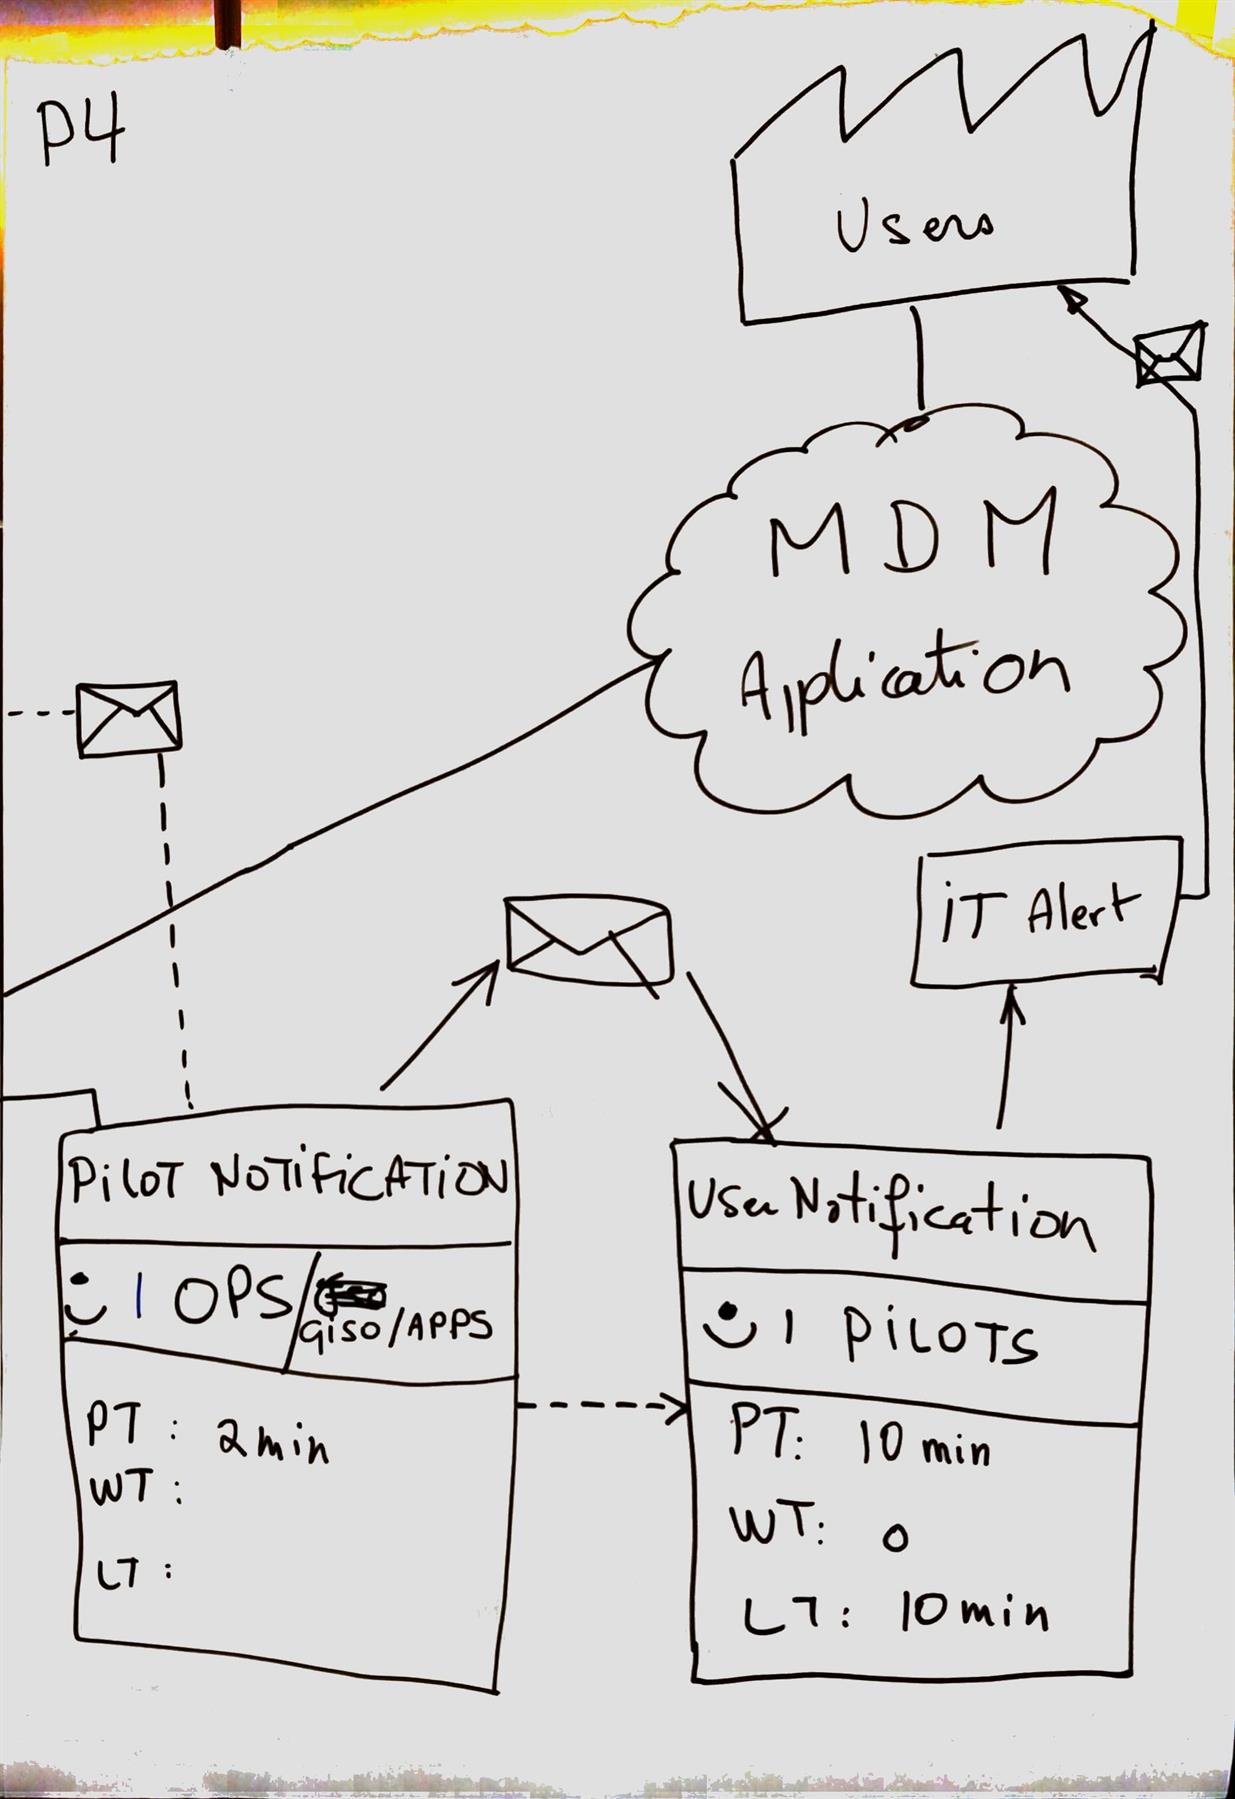 P4
Users
MDM
Application
iT Alert
PiLOT NOTiFiCATiON
1 OPS/
GiSO/APPS
PT : 2min
WT :
LT :
User Notification
1 PiLOTS
PT: 10 min
WT: 0
LT: 10min